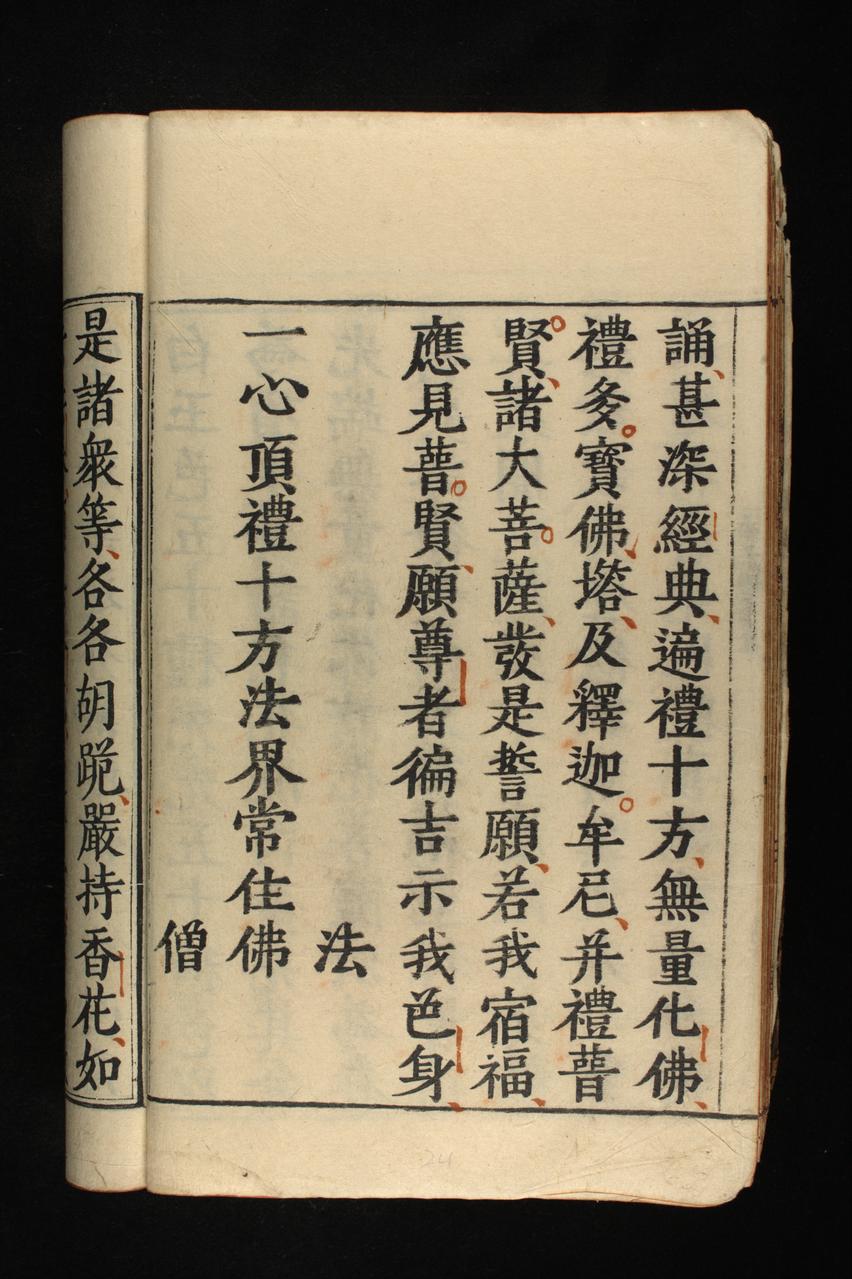 誦甚深經典遍禮十方無量化佛
禮多寶佛塔及釋迦牟尼并禮普
賢諸大菩薩發是誓願若我宿福
應見普賢願尊者徧吉示我色身
法
一心頂禮十方法界常住佛
僧
是諸眾等各各胡跪嚴持香花如
24